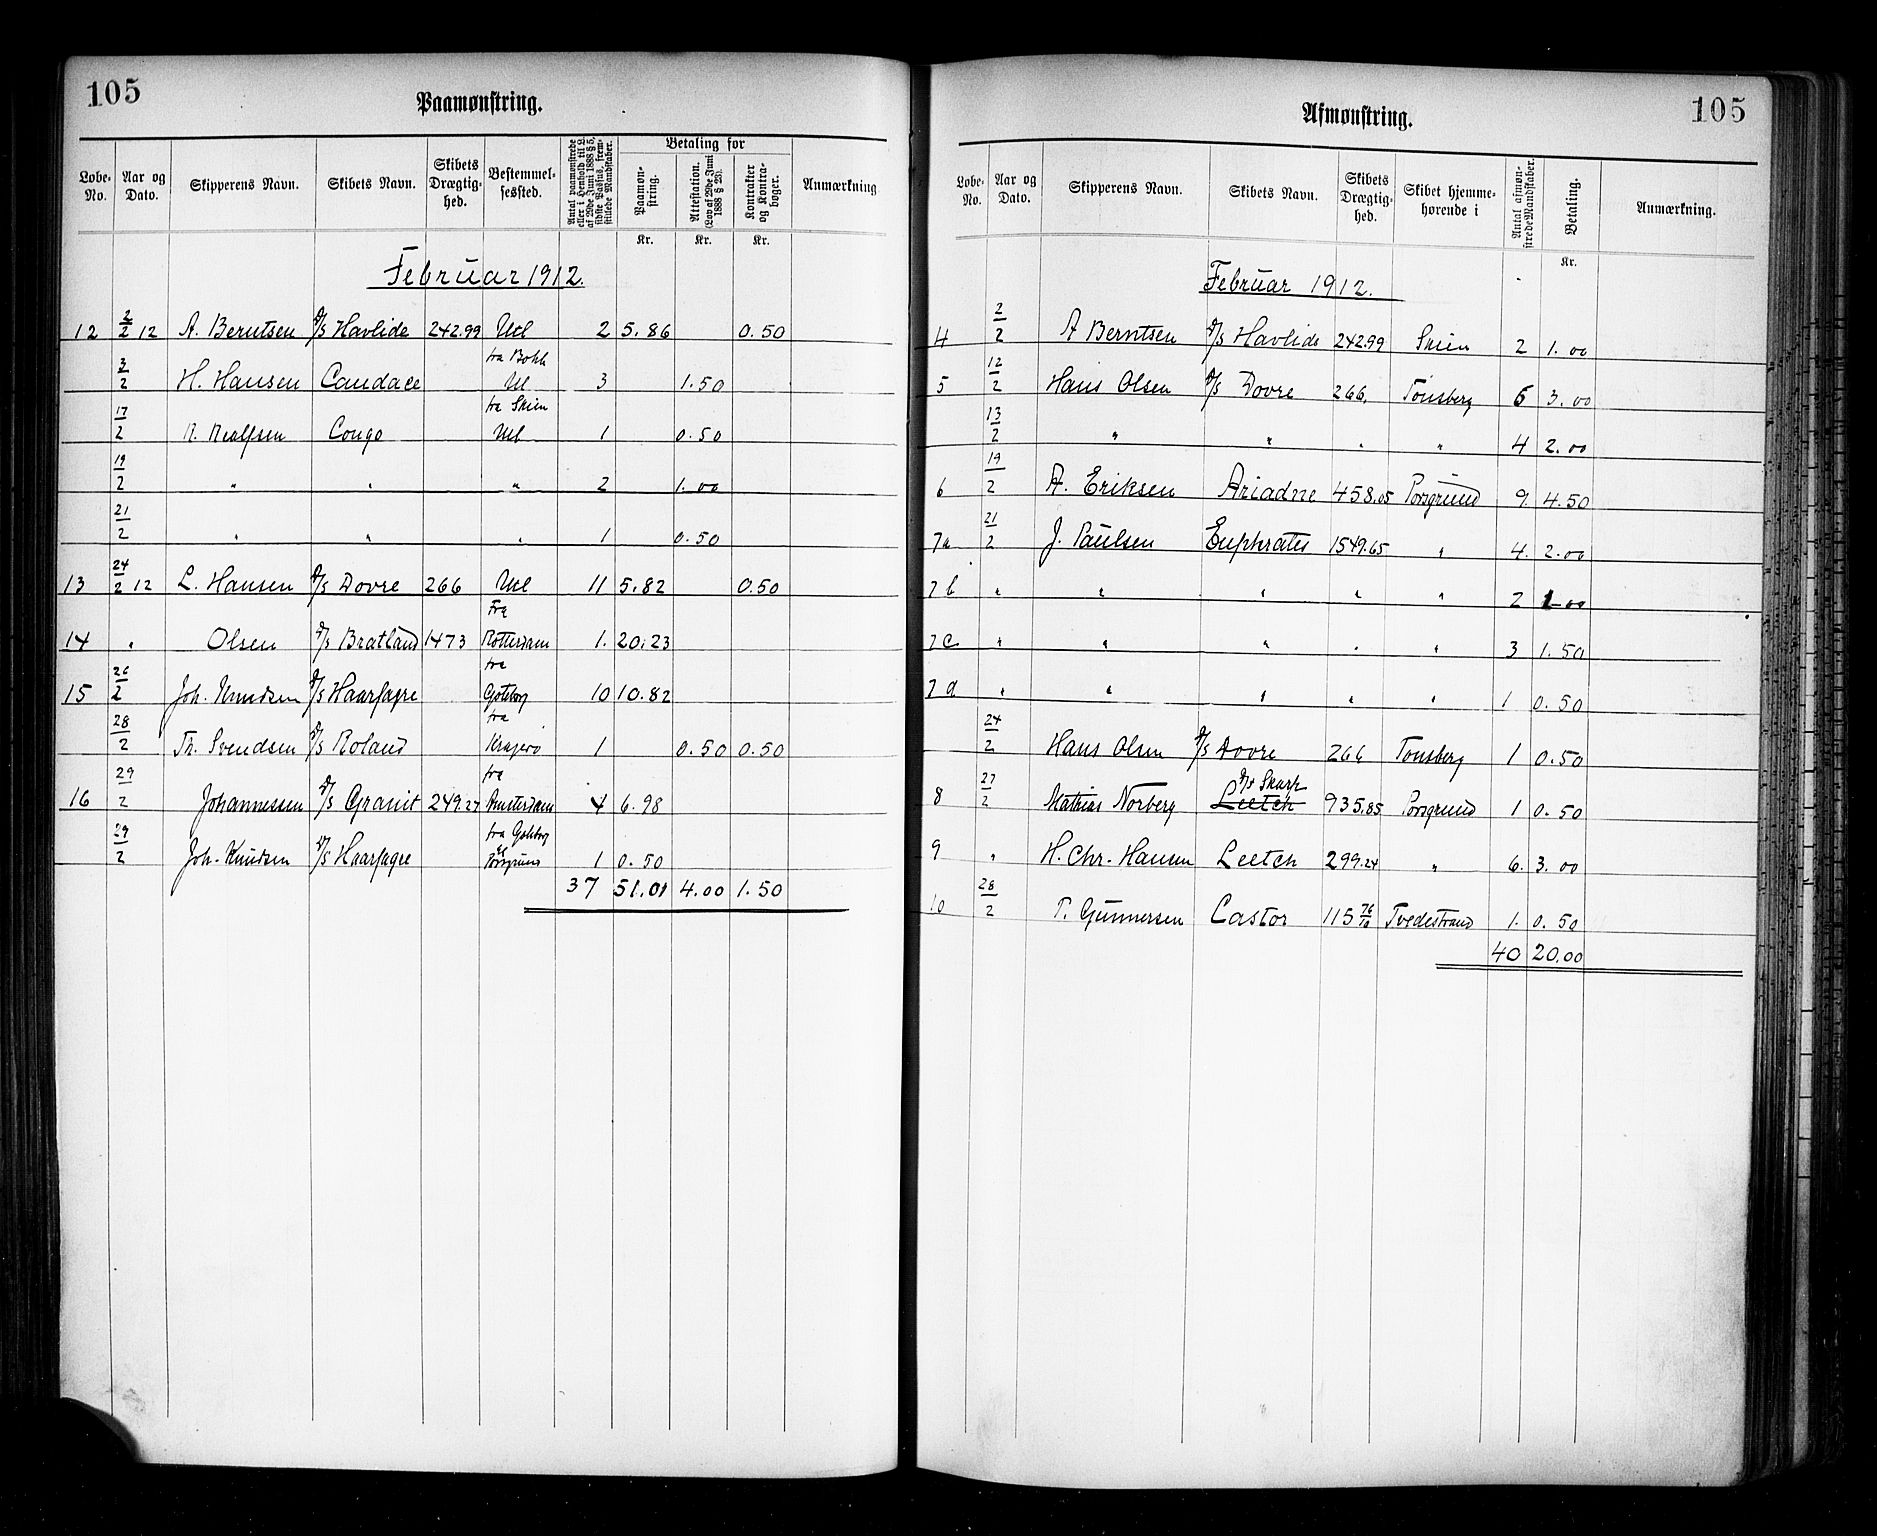 105
Paamønstring.
Løbe-No. | Aar og Dato. | Skipperens Navn. | Skibets Navn. | Skibets Drægtig-hed. | Bestemmel-sessted. | Antal paamønstrede eller i Henhold til L. af 29de Juni 1888 § 5, sidste Passus, frem-stillede Mandskaber. | Betaling for | Paamøn-string. | Attestation. (Lov af 29de Juni 1888 § 23). | Kontrakter og Kontra-bøger. | Anmærkning
Kr. | Kr. | Kr.
Februar 1912.
12 | 2/2 12 | A. Berntsen | D/S Havlide | 242.99 | Utl | 2 | 5.86 | | 0.50
3/2 | H. Hansen | Candace | | fra Utl | 3 | | 1.50
17/2 | R. Realfsen | Congo | | fra Skien Utl | 1 | | 0.50
19/2 | " | " | | " | 2 | | 1.00
21/2 | " | " | | " | 1 | | 0.50
13 | 24/2 12 | L. Hansen | D/S Dovre | 266 | Utl | 11 | 5.82 | | 0.50
14 | " | Olsen | D/S Bratland | 1473 | Fra Rotterdam | 1. | 20.23
15 | 26/2 | Joh. Knudsen | D/S Haarfagre | | fra Gøteborg | 10 | 10.82
28/2 | Th. Svendsen | D/S Roland | | fra Kragerø | 1 | | 0.50 | 0.50
16 | 29/2 | Johannessen | D/S Granit | 249.27 | fra Amsterdam | 4 | 6.98
29/2 | Joh. Knudsen | D/S Haarfagre | | fra Gøteborg til Porsgrund | 1 | 0.50
37 | 51.01 | 4.00 | 1.50
105
Afmønstring.
Løbe-No. | Aar og Dato. | Skipperens Navn. | Skibets Navn. | Skibets Drægtig-hed. | Skibet hjemme-hørende i | Antal afmøn-strede Mandskaber. | Betaling. | Anmærkning.
Kr.
Februar 1912.
4 | 2/2 | A Berntsen | D/S Havlide | 242.99 | Skien | 2 | 1.00
5 | 12/2 | Hans Olsen | D/S Dovre | 266. | Tønsberg | 6 | 3.00
13/2 | " | " | " | " | 4 | 2.00
6 | 19/2 | A. Eriksen | Ariadne | 458.05 | Porsgrund | 9. | 4.50
7a | 21/2 | J. Paulsen | Euphrates | 1549.65 | " | 4. | 2.00
7b | " | " | " | " | " | 2 | 1.00
7c | " | " | " | " | " | 3 | 1.50
7d | " | " | " | " | " | 1 | 0.50
24/2 | Hans Olsen | D/S Dovre | 266 | Tønsberg | 1 | 0.50
8 | 27/2 | Mathias Norberg | D/S Skarp Leetch | 935.85 | Porsgrund | 1 | 0.50
9 | " | H. Chr. Hansen | Leetch | 299.24 | " | 6. | 3.00
10 | 28/2 | T. Gunnersen | Castor | 115 76/10 | Tvedestrand | 1. | 0.50
40 | 20.00